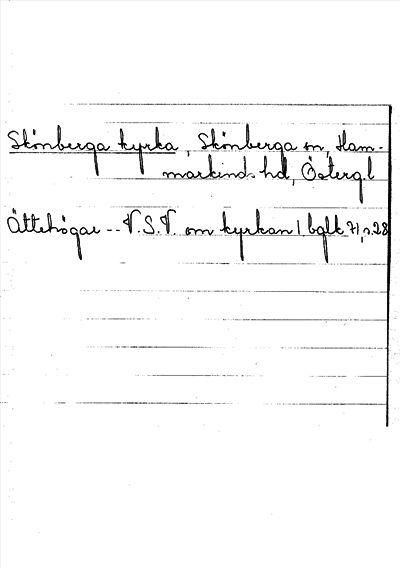 Skönberga kyrka, Skönberga sn, Ham-
markinds hd, Östergl
Ättehögar -- V.S.V. om kyrkan / bglk 71, s.28